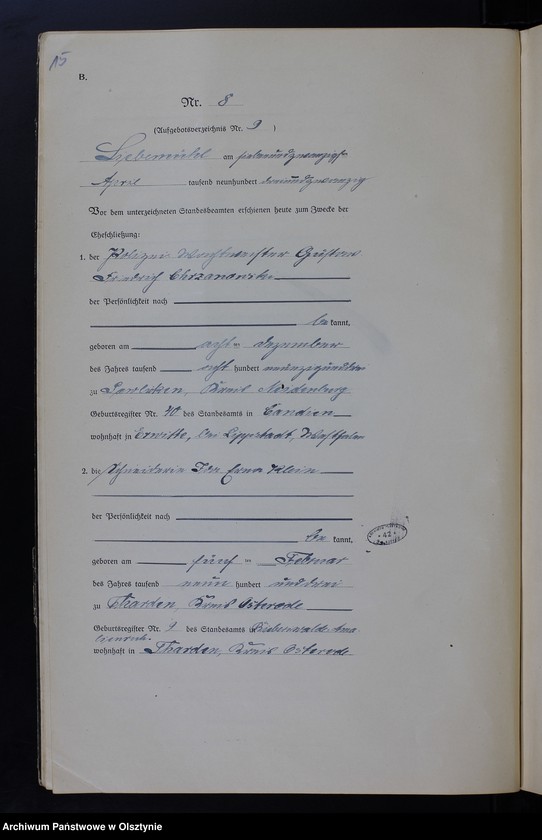 15
B.
Nr. 8
(Aufgebotsverzeichnis Nr. 9 )
Liebemühl am siebenundzwanzigsten
April tausend neunhundert dreiundzwanzig
Vor dem unterzeichneten Standesbeamten erschienen heute zum Zwecke der
Eheschließung:
1. der Polizei Wachtmeister Gustav
Friedrich Chrzanowski
der Persönlichkeit nach
be kannt,
geboren am acht ten Dezember
des Jahres tausend acht hundert neunzigunddrei
zu Kreis
Geburtsregister Nr. 70 des Standesamts in Candien
wohnhaft in Erwitte, bei Lippstadt, Westfalen
2. die Schneiderin Ida Erna Klein
der Persönlichkeit nach
be kannt,
geboren am fünf ten Februar
des Jahres tausend neun hundert unddrei
zu Tharden, Kreis Osterode
Geburtsregister Nr. 9 des Standesamts in
wohnhaft in Tharden, Kreis Osterode
Archiwum Państwowe w Olsztynie